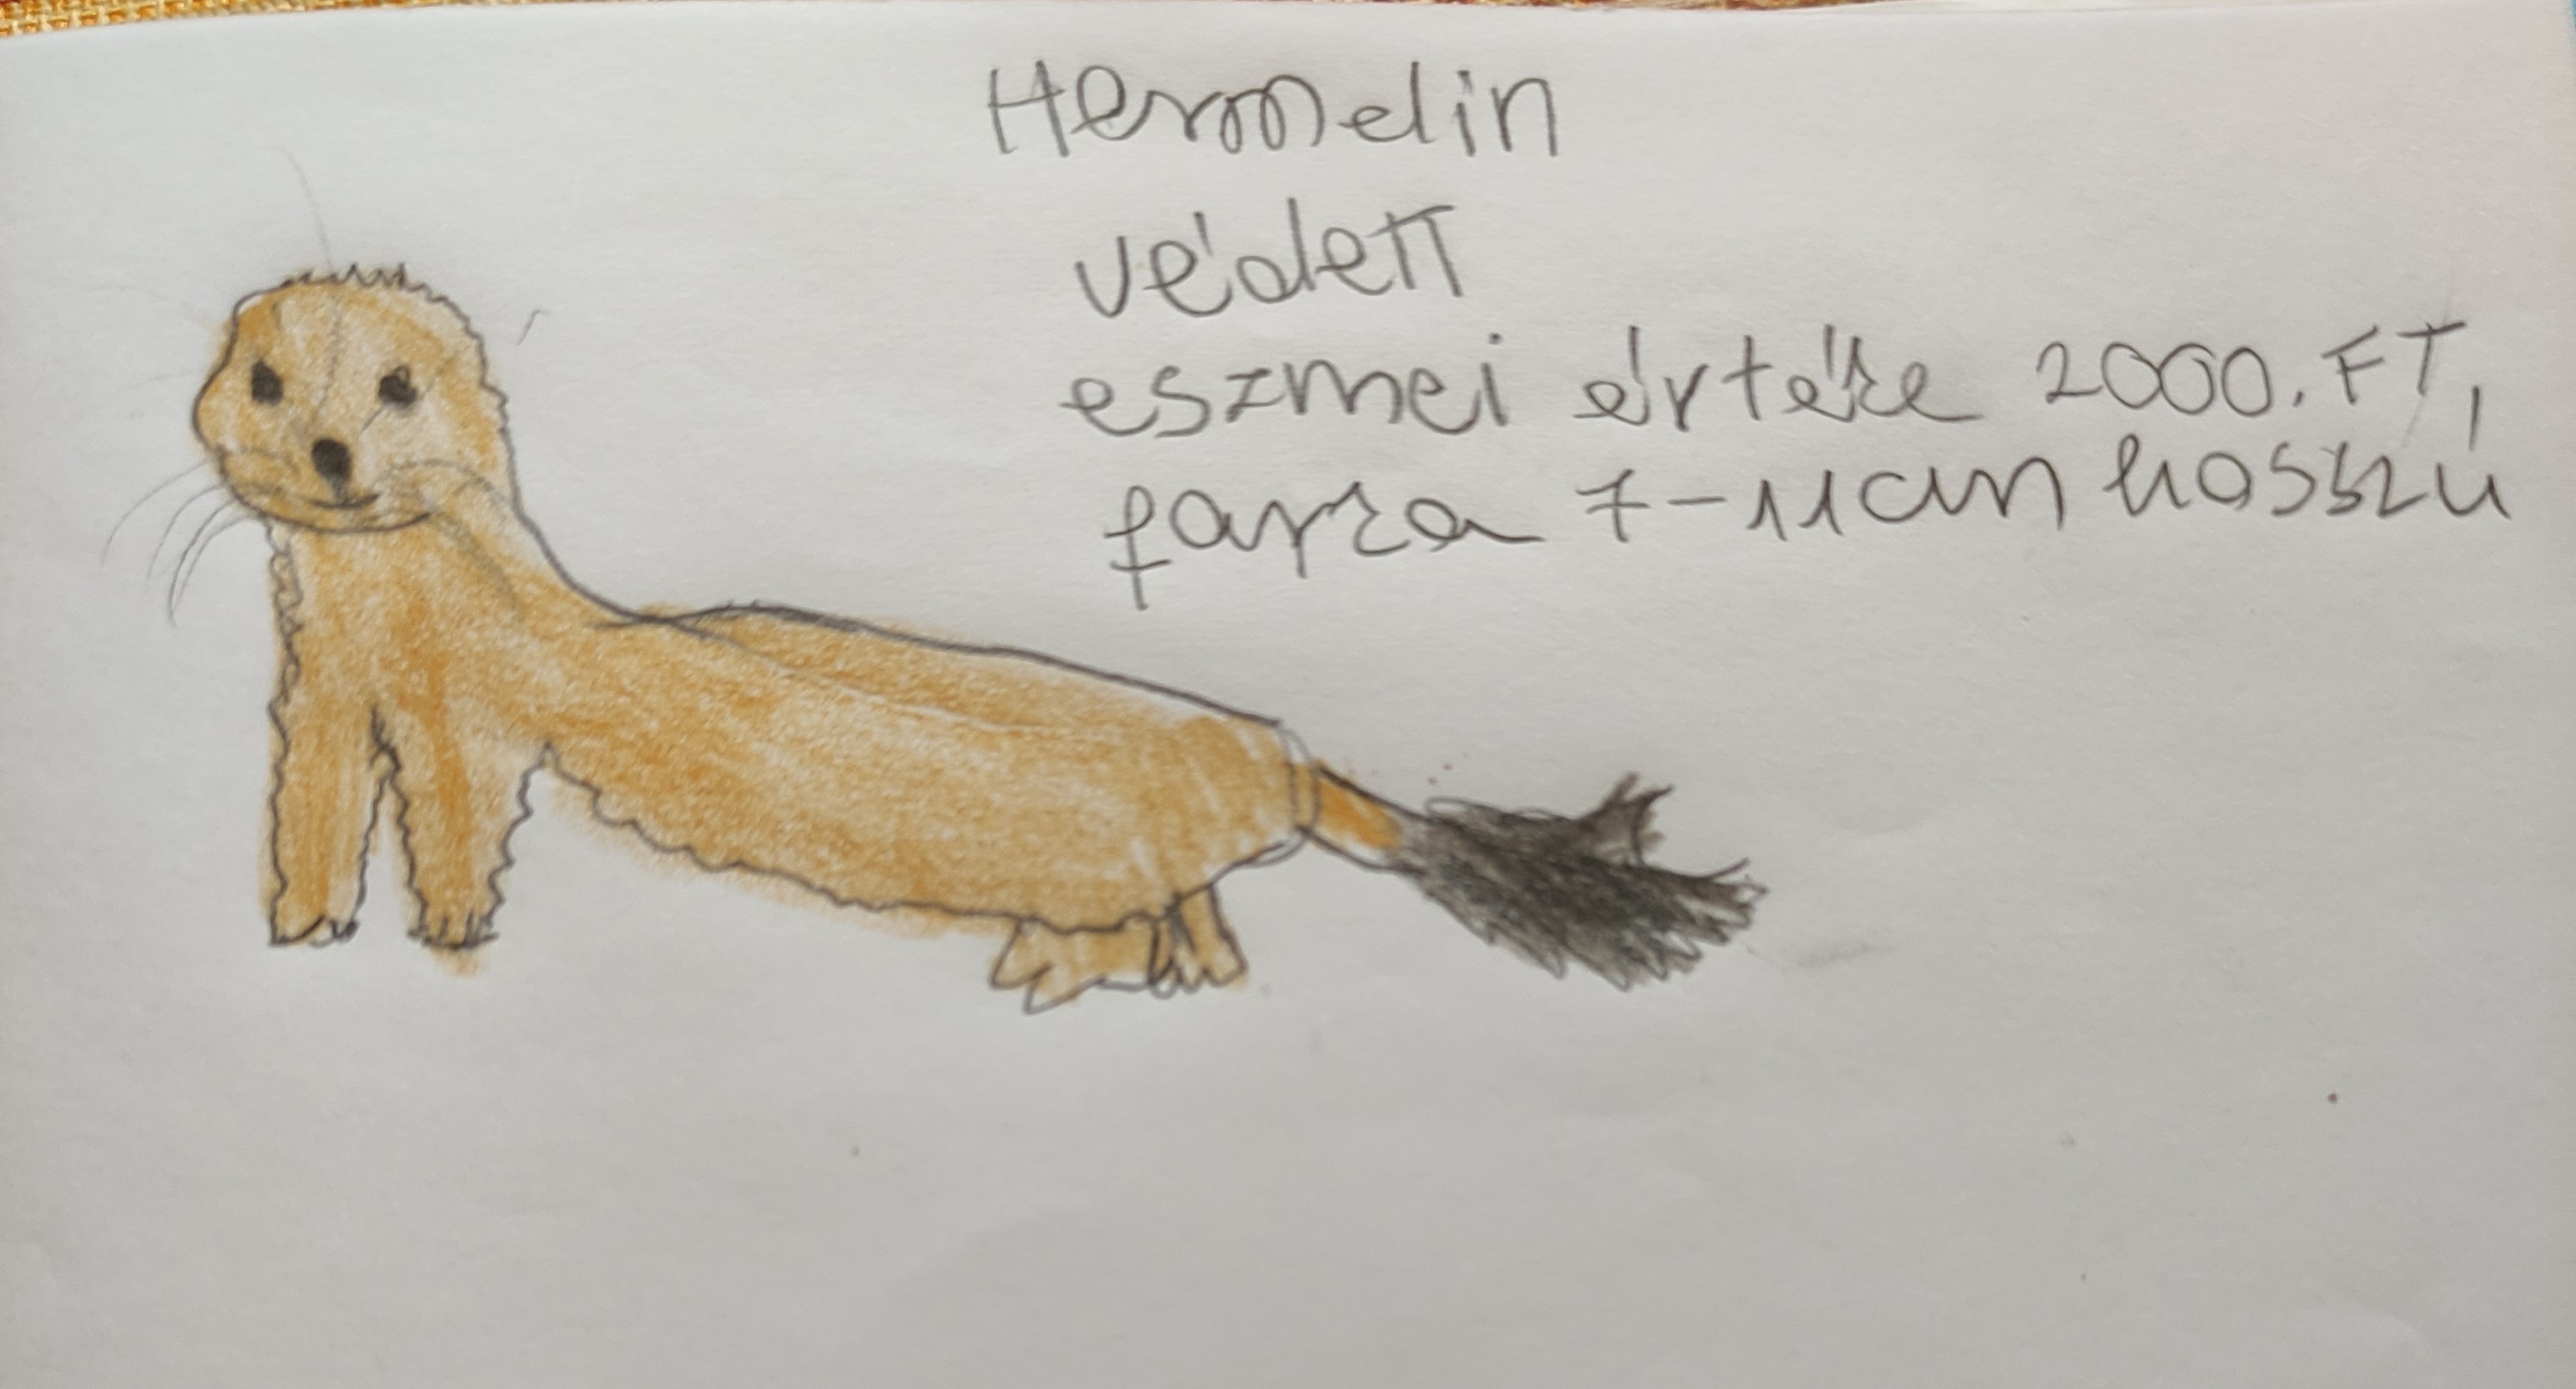 Hermelin
védett
eszmei értéke 2000. FT,
farka 7-11cm hosszú